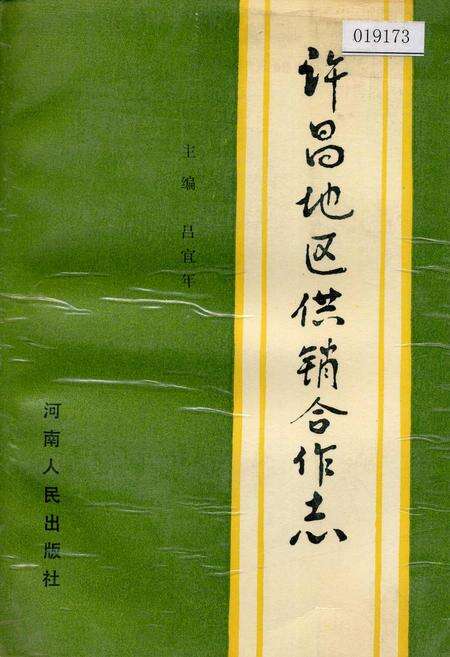 019173
许昌地区供销合作志
主编 吕宜年
河南人民出版社